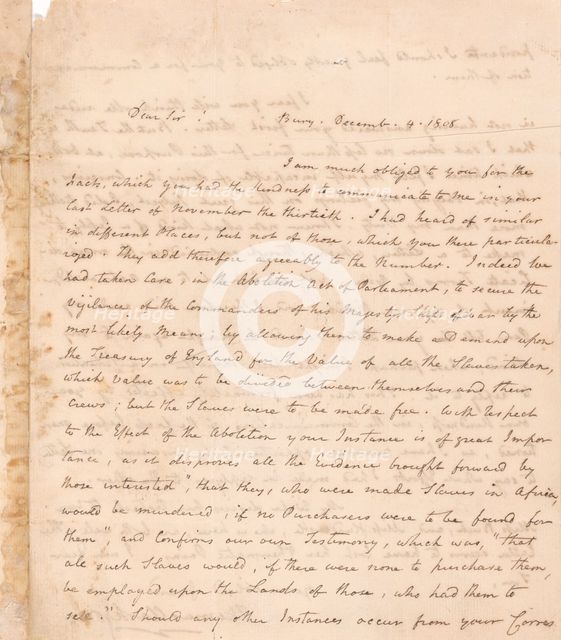 Dear Sir! Bury. Decemb. 4. 1808
I am much obliged to you for the
Facts, which you had the Kindness to communicate to me in your
last Letter of November the thirtieth. I had heard of similar
in different Places, but not of those, which you there particula-
rized. They add therefore agreeably to the Number. Indeed we
had taken Care, in the Abolition Act of Parliament, to secure the
Vigilance of the Commanders of his Majestys Ships of war by the
most likely Means; by allowing them to make a Demand upon
the Treasury of England for the Value of all the Slaves taken,
which Value was to be divided between themselves and their
Crews; but the Slaves were to be made free. With respect
to the Effect of the Abolition your Instance is of great Impor
tance, as it disproves all the Evidence brought forward by
those interested", that they, who were made Slaves in Africa,
would be murdered, if no Purchasers were to be found for
them", and confirms our own Testimony, which was, "that
all such Slaves would, if there were none to purchase them,
be employed upon the Lands of those, who had them to
sell." Should any other Instances occur from your Corres
Heritage
Heritage
Heritage
Heritage
Heritage
Heritage